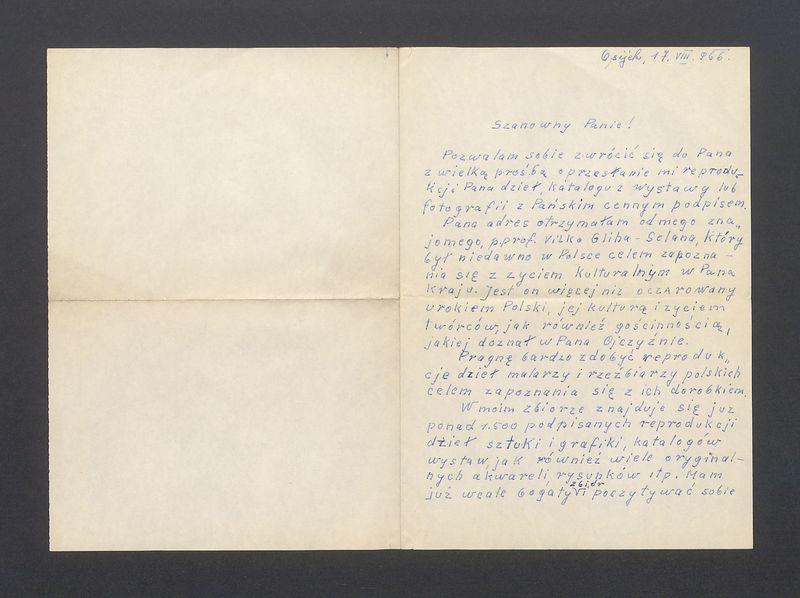 Osijek, 17. VIII. 966.
Szanowny Panie!
Pozwalam sobie zwrócić się do Pana
z wielką prośbą o przesłanie mi reprodu-
kcji Pana dzieł, katalogu z wystawy lub
fotografii z Pańskim cennym podpisem.
Pana adres otrzymałam od mego zna„
jomego, p. prof. Vilko Gliha-Selana, który
był niedawno w Polsce celem zapozna-
nia się z życiem kulturalnym w Pana
kraju. Jest on więcej niż oczarowany
urokiem Polski, jej kulturą i życiem
twórców, jak również gościnnością,
jakiej doznał w Pana Ojczyźnie.
Pragnę bardzo zdobyć reproduk„
cje dzieł malarzy i rzeźbiarzy polskich
celem zapoznania się z ich dorobkiem.
W moim zbiorze znajduje się już
ponad 1.500 podpisanych reprodukcji
dzieł sztuki i grafiki, katalogów
wystaw, jak również wiele oryginal-
nych akwareli, rysunków itp. Mam
już wcale bogaty zbiór i poczytywać sobie